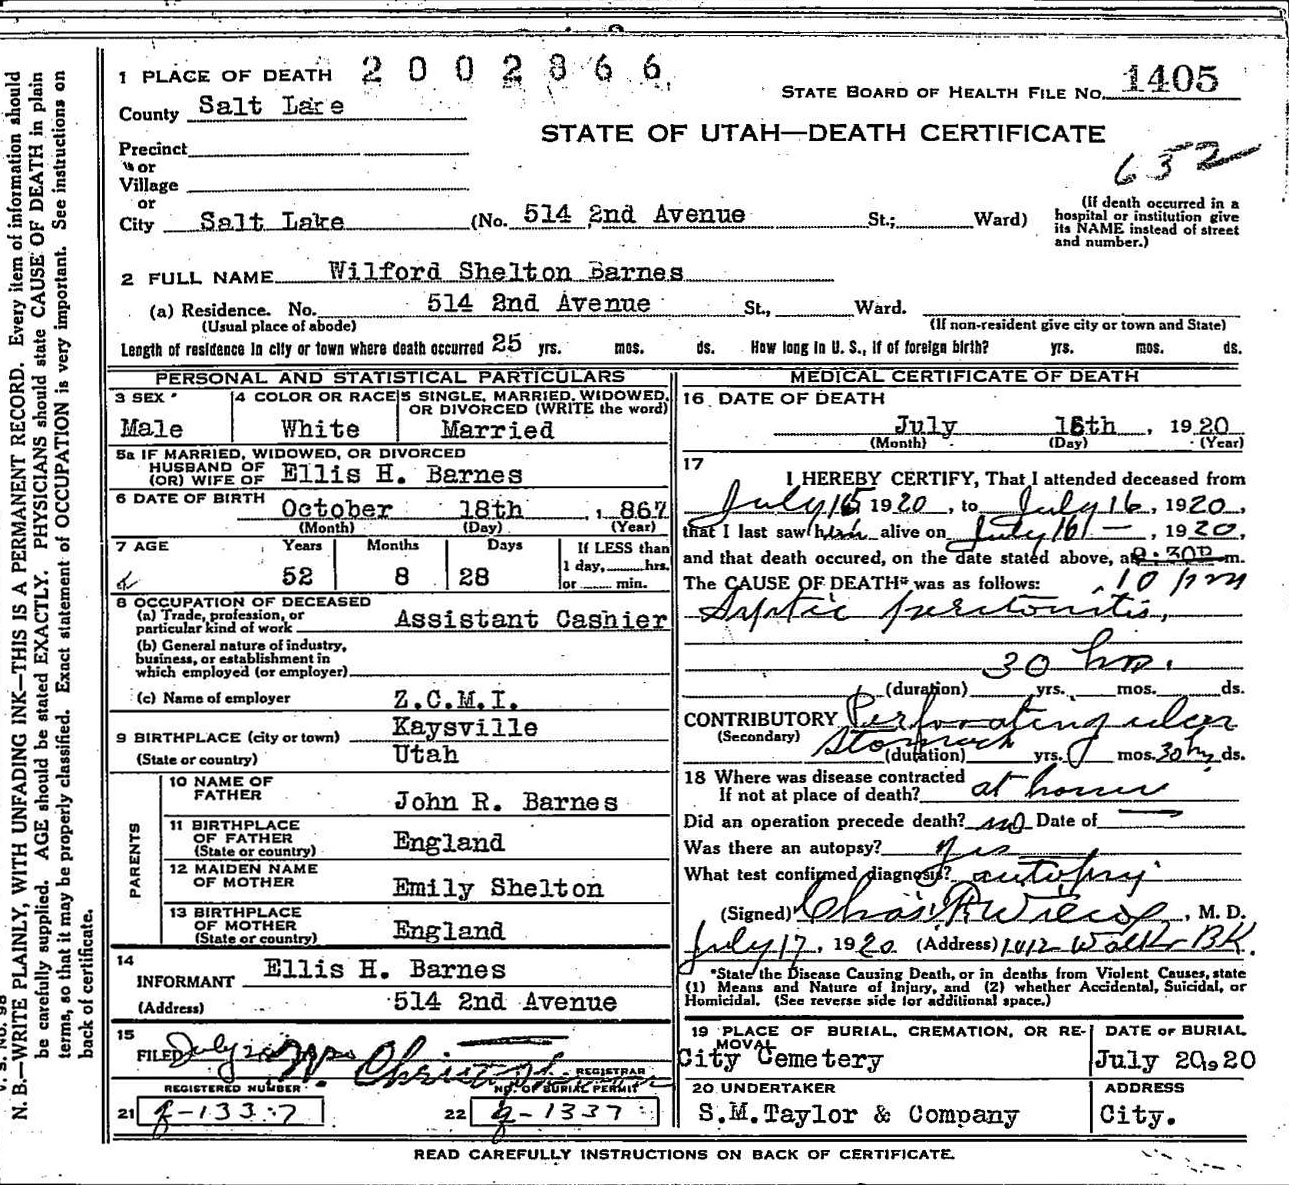 1 PLACE OF DEATH 2002866
STATE BOARD OF HEALTH FILE NO. 1405
County Salt Lake
STATE OF UTAH—DEATH CERTIFICATE
652
Precinct
or
Village
or
City Salt Lake (No. 514 2nd Avenue St.; Ward)
(If death occurred in a
hospital or institution give
its NAME instead of street
and number.)
2 FULL NAME Wilford Shelton Barnes
(a) Residence. No. 514 2nd Avenue St., Ward.
(Usual place of abode) (If non-resident give city or town and State)
Length of residence in city or town where death occurred 25 yrs. mos. ds. How long in U. S., if of foreign birth? yrs. mos. ds.
PERSONAL AND STATISTICAL PARTICULARS
3 SEX 4 COLOR OR RACE 5 SINGLE, MARRIED, WIDOWED,
OR DIVORCED (WRITE the word)
Male White Married
5a IF MARRIED, WIDOWED, OR DIVORCED
HUSBAND OF
(OR) WIFE OF Ellis H. Barnes
6 DATE OF BIRTH October 18th , 1867
(Month) (Day) (Year)
7 AGE Years Months Days If LESS than
1 day, hrs.
or min.
52 8 28
8 OCCUPATION OF DECEASED
(a) Trade, profession, or
particular kind of work Assistant Cashier
(b) General nature of industry,
business, or establishment in
which employed (or employer)
(c) Name of employer Z.C.M.I.
9 BIRTHPLACE (city or town) Kaysville
(State or country) Utah
PARENTS
10 NAME OF
FATHER John R. Barnes
11 BIRTHPLACE
OF FATHER
(State or country) England
12 MAIDEN NAME
OF MOTHER Emily Shelton
13 BIRTHPLACE
OF MOTHER
(State or country) England
14
INFORMANT Ellis H. Barnes
(Address) 514 2nd Avenue
15
FILED July 20
REGISTRAR
REGISTERED NUMBER NO. OF BURIAL PERMIT
21 g-1337 22 g-1337
MEDICAL CERTIFICATE OF DEATH
16 DATE OF DEATH
July 16th , 1920
(Month) (Day) (Year)
17
I HEREBY CERTIFY, That I attended deceased from
July 15 1920, to July 16, 1920,
that I last saw him alive on July 16 — , 1920,
and that death occured, on the date stated above, at m.
The CAUSE OF DEATH* was as follows: 10 pm
Septic peritonitis,
30 hrs.
(duration) yrs. mos. ds.
CONTRIBUTORY Perforating ulcer
(Secondary) Stomach
(duration) yrs. mos. 30 hrs ds.
18 Where was disease contracted
If not at place of death? at home
Did an operation precede death? no Date of —
Was there an autopsy? yes
What test confirmed diagnosis? autopsy
(Signed) Chas. R Wilcox, M. D.
July 17, 1920 (Address) 1012 Walker BK.
*State the Disease Causing Death, or in deaths from Violent Causes, state
(1) Means and Nature of Injury, and (2) whether Accidental, Suicidal, or
Homicidal. (See reverse side for additional space.)
19 PLACE OF BURIAL, CREMATION, OR RE-
MOVAL DATE OF BURIAL
City Cemetery July 20, 1920
20 UNDERTAKER ADDRESS
S.M.Taylor & Company City.
READ CAREFULLY INSTRUCTIONS ON BACK OF CERTIFICATE.
V. S. No. 98
N. B.—WRITE PLAINLY, WITH UNFADING INK—THIS IS A PERMANENT RECORD. Every item of information should
be carefully supplied. AGE should be stated EXACTLY. PHYSICIANS should state CAUSE OF DEATH in plain
terms, so that it may be properly classified. Exact statement of OCCUPATION is very important. See instructions on
back of certificate.